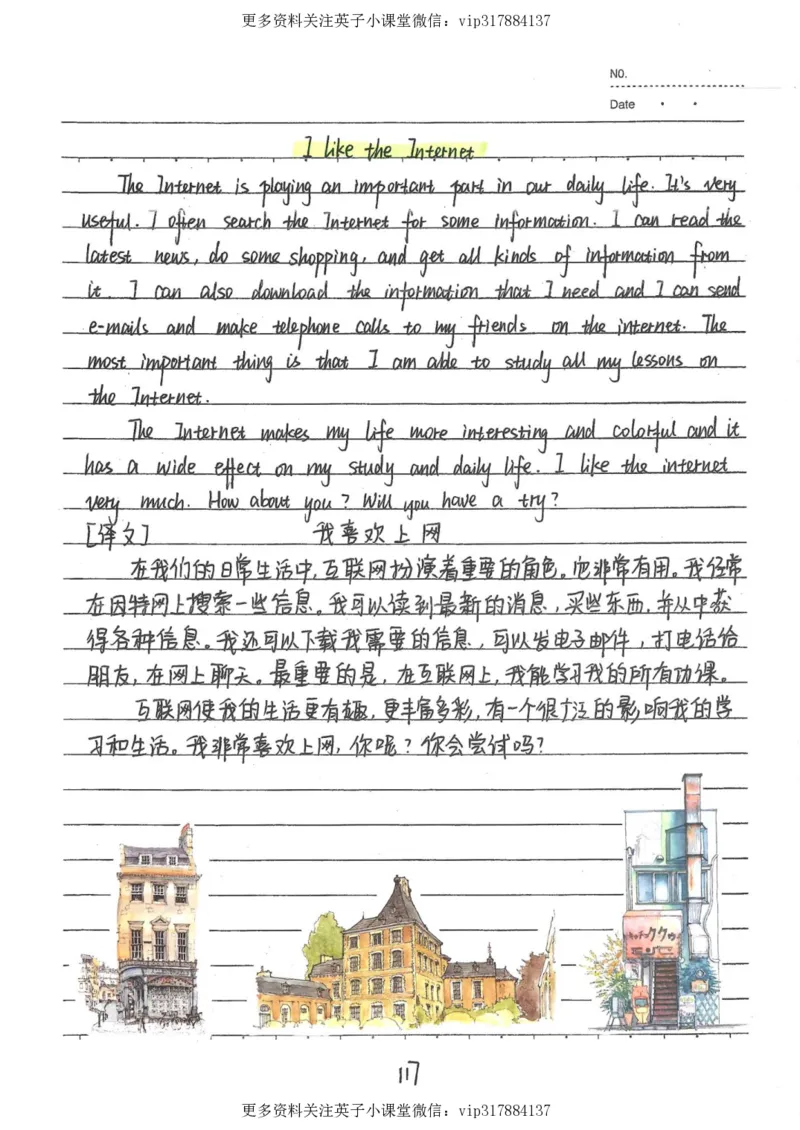 更多资料关注英子小课堂微信：vip317884137
NO.
Date
I like the Internet
The Internet is playing an important part in our daily life. It's very
useful. I often search the Internet for some information. I can read the
latest news, do some shopping, and get all kinds of information from
it. I can also download the information that I need and I can send
e-mails and make telephone calls to my friends on the internet. The
most important thing is that I am able to study all my lessons on
the Internet.
The Internet makes my life more interesting and colorful and it
has a wide effect on my study and daily life. I like the internet
very much. How about you? Will you have a try?
[译文] 我喜欢上网
在我们的日常生活中,互联网扮演着重要的角色。它非常有用。我经常
在因特网上搜索一些信息。我可以读到最新的消息,买些东西,并从中获
得各种信息。我还可以下载我需要的信息,可以发电子邮件,打电话给
朋友,在网上聊天。最重要的是,在互联网上,我能学习我的所有功课。
互联网使我的生活更有趣,更丰富多彩,有一个很广泛的影响我的学
习和生活。我非常喜欢上网,你呢?你会尝试吗?
117
更多资料关注英子小课堂微信：vip317884137